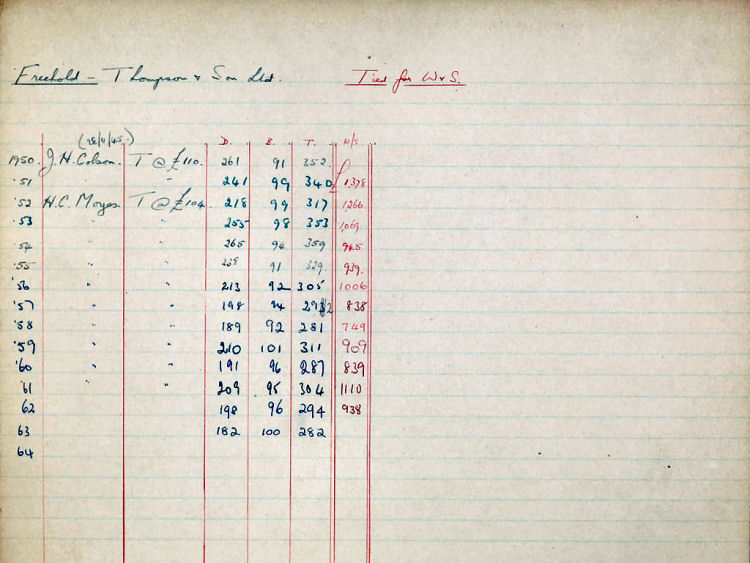 Freehold - Thompson & Son Ltd. Tied for W & S.
D. B. T. W/S.
1950. J.H. Colson. T @ £110. 261 91 352
'51 " 241 99 340 1,378
'52 H.C. Moyes T @ £104. 218 99 317 1266
'53 " " 255 98 353 1,069
'54 " " 265 94 359 965
'55 " " 238 91 329 939.
'56 " " 213 92 305 1006
'57 " " 198 94 292 838
'58 " " 189 92 281 749
'59 " " 210 101 311 909
'60 " " 191 96 287 839
'61 " " 209 95 304 1110
62 198 96 294 938
63 182 100 282
64